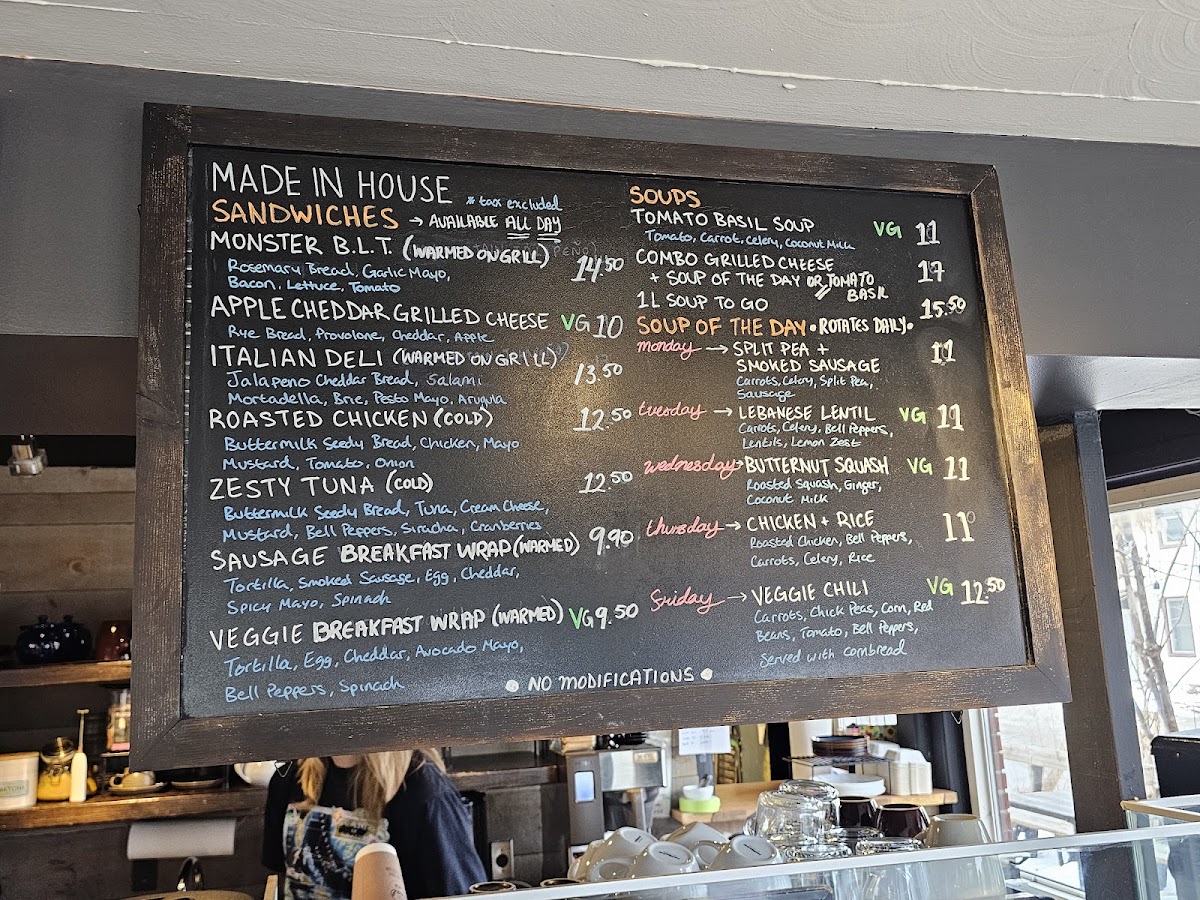 MADE IN HOUSE * tax excluded
SANDWICHES → AVAILABLE ALL DAY
MONSTER B.L.T. (WARMED ON GRILL) 14.50
Rosemary Bread, Garlic Mayo,
Bacon, Lettuce, Tomato
APPLE CHEDDAR GRILLED CHEESE VG 10
Rye Bread, Provolone, Cheddar, Apple
ITALIAN DELI (WARMED ON GRILL) 13.50
Jalapeno Cheddar Bread, Salami
Mortadella, Brie, Pesto Mayo, Arugula
ROASTED CHICKEN (COLD) 12.50
Buttermilk Seedy Bread, Chicken, Mayo
Mustard, Tomato, Onion
ZESTY TUNA (COLD) 12.50
Buttermilk Seedy Bread, Tuna, Cream Cheese,
Mustard, Bell Peppers, Siracha, Cranberries
SAUSAGE BREAKFAST WRAP (WARMED) 9.90
Tortilla, Smoked Sausage, Egg, Cheddar,
Spicy Mayo, Spinach
VEGGIE BREAKFAST WRAP (WARMED) VG 9.50
Tortilla, Egg, Cheddar, Avocado Mayo,
Bell Peppers, Spinach
SOUPS
TOMATO BASIL SOUP VG 11
Tomato, Carrot, Celery, Coconut Milk
COMBO GRILLED CHEESE 17
+ SOUP OF THE DAY OR TOMATO
BASIL
1L SOUP TO GO 15.50
SOUP OF THE DAY • ROTATES DAILY •
monday → SPLIT PEA + 11
SMOKED SAUSAGE
Carrots, Celery, Split Pea,
Sausage
tuesday → LEBANESE LENTIL VG 11
Carrots, Celery, Bell Peppers,
Lentils, Lemon Zest
wednesday → BUTTERNUT SQUASH VG 11
Roasted Squash, Ginger,
Coconut Milk
thursday → CHICKEN + RICE 11
Roasted Chicken, Bell Peppers,
Carrots, Celery, Rice
friday → VEGGIE CHILI VG 12.50
Carrots, Chick Peas, Corn, Red
Beans, Tomato, Bell Peppers,
Served with cornbread
• NO MODIFICATIONS •